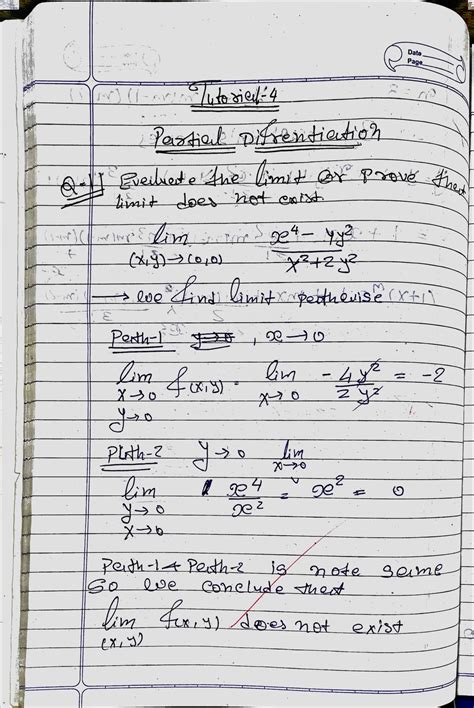 Date
Page
Tutorial-4
Partial Difrentiation
Q-1] Evaluate the limit or prove that
limit does not exist
lim (x,y)→(0,0) x⁴ - 4y² / x² + 2y²
→ we find limit pathwise
Path-1 y→0, x→0
lim x→0 y→0 f(x,y) = lim x→0 -4y² / 2y² = -2
Path-2 y→0 lim x→0
lim y→0 x→0 x⁴ / x² = x² = 0
Path-1 & Path-2 is note same
So we conclude that
lim (x,y) f(x,y) does not exist